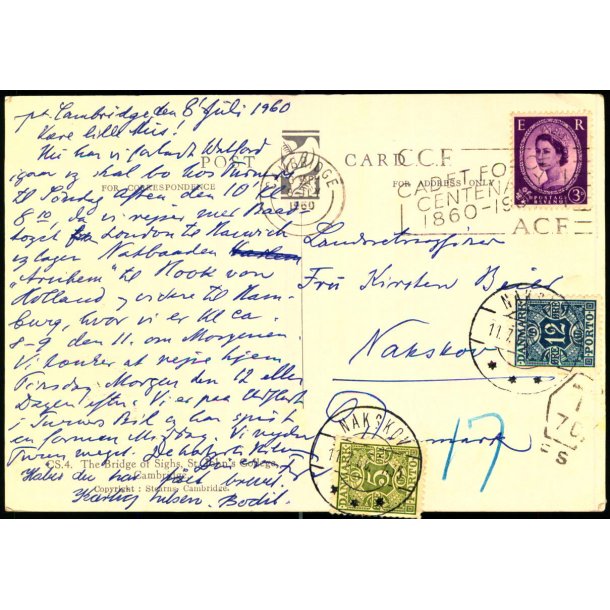 pt. Cambridge, den 8' Juli 1960
Kære lille Mus!
Nu har vi forladt Watford
igaar og skal bo hos
til Søndag Aften den 10' Kl.
8, da vi rejser med Baad-
toget fra London til Harwich
og tager Natbaaden
"Arnhem" til Hook van
Holland og videre til Ham-
burg, hvor vi er Kl. ca.
8-9 den 11. om Morgenen.
Vi tænker at rejse hjem
Tirsdag Morgen den 12 eller
Dagen efter. Vi er paa Udflugt
i Bil og har spist
en Middag. Vi nyder
Turen meget.
Haaber du har faaet brevet.
Kærlig hilsen. Bodil.
POST CARD
FOR CORRESPONDENCE
FOR ADDRESS ONLY
CAMBRIDGE
1960
C.C.F.
CADET FO
CENTENA
1860-19
A.C.F.
E R
POSTAGE
3D
Landsretssagfører
Fru Kirsten Beier
Nakskov
Danmark
NAKS
11.7.
DANMARK
12
ØRE
PORTO
T
7C
FS
17
NAKSKOV
11
DANMARK
5
PORTO
CS.4. The Bridge of Sighs, St. John's College,
Cambridge.
Copyright : Stearns, Cambridge.